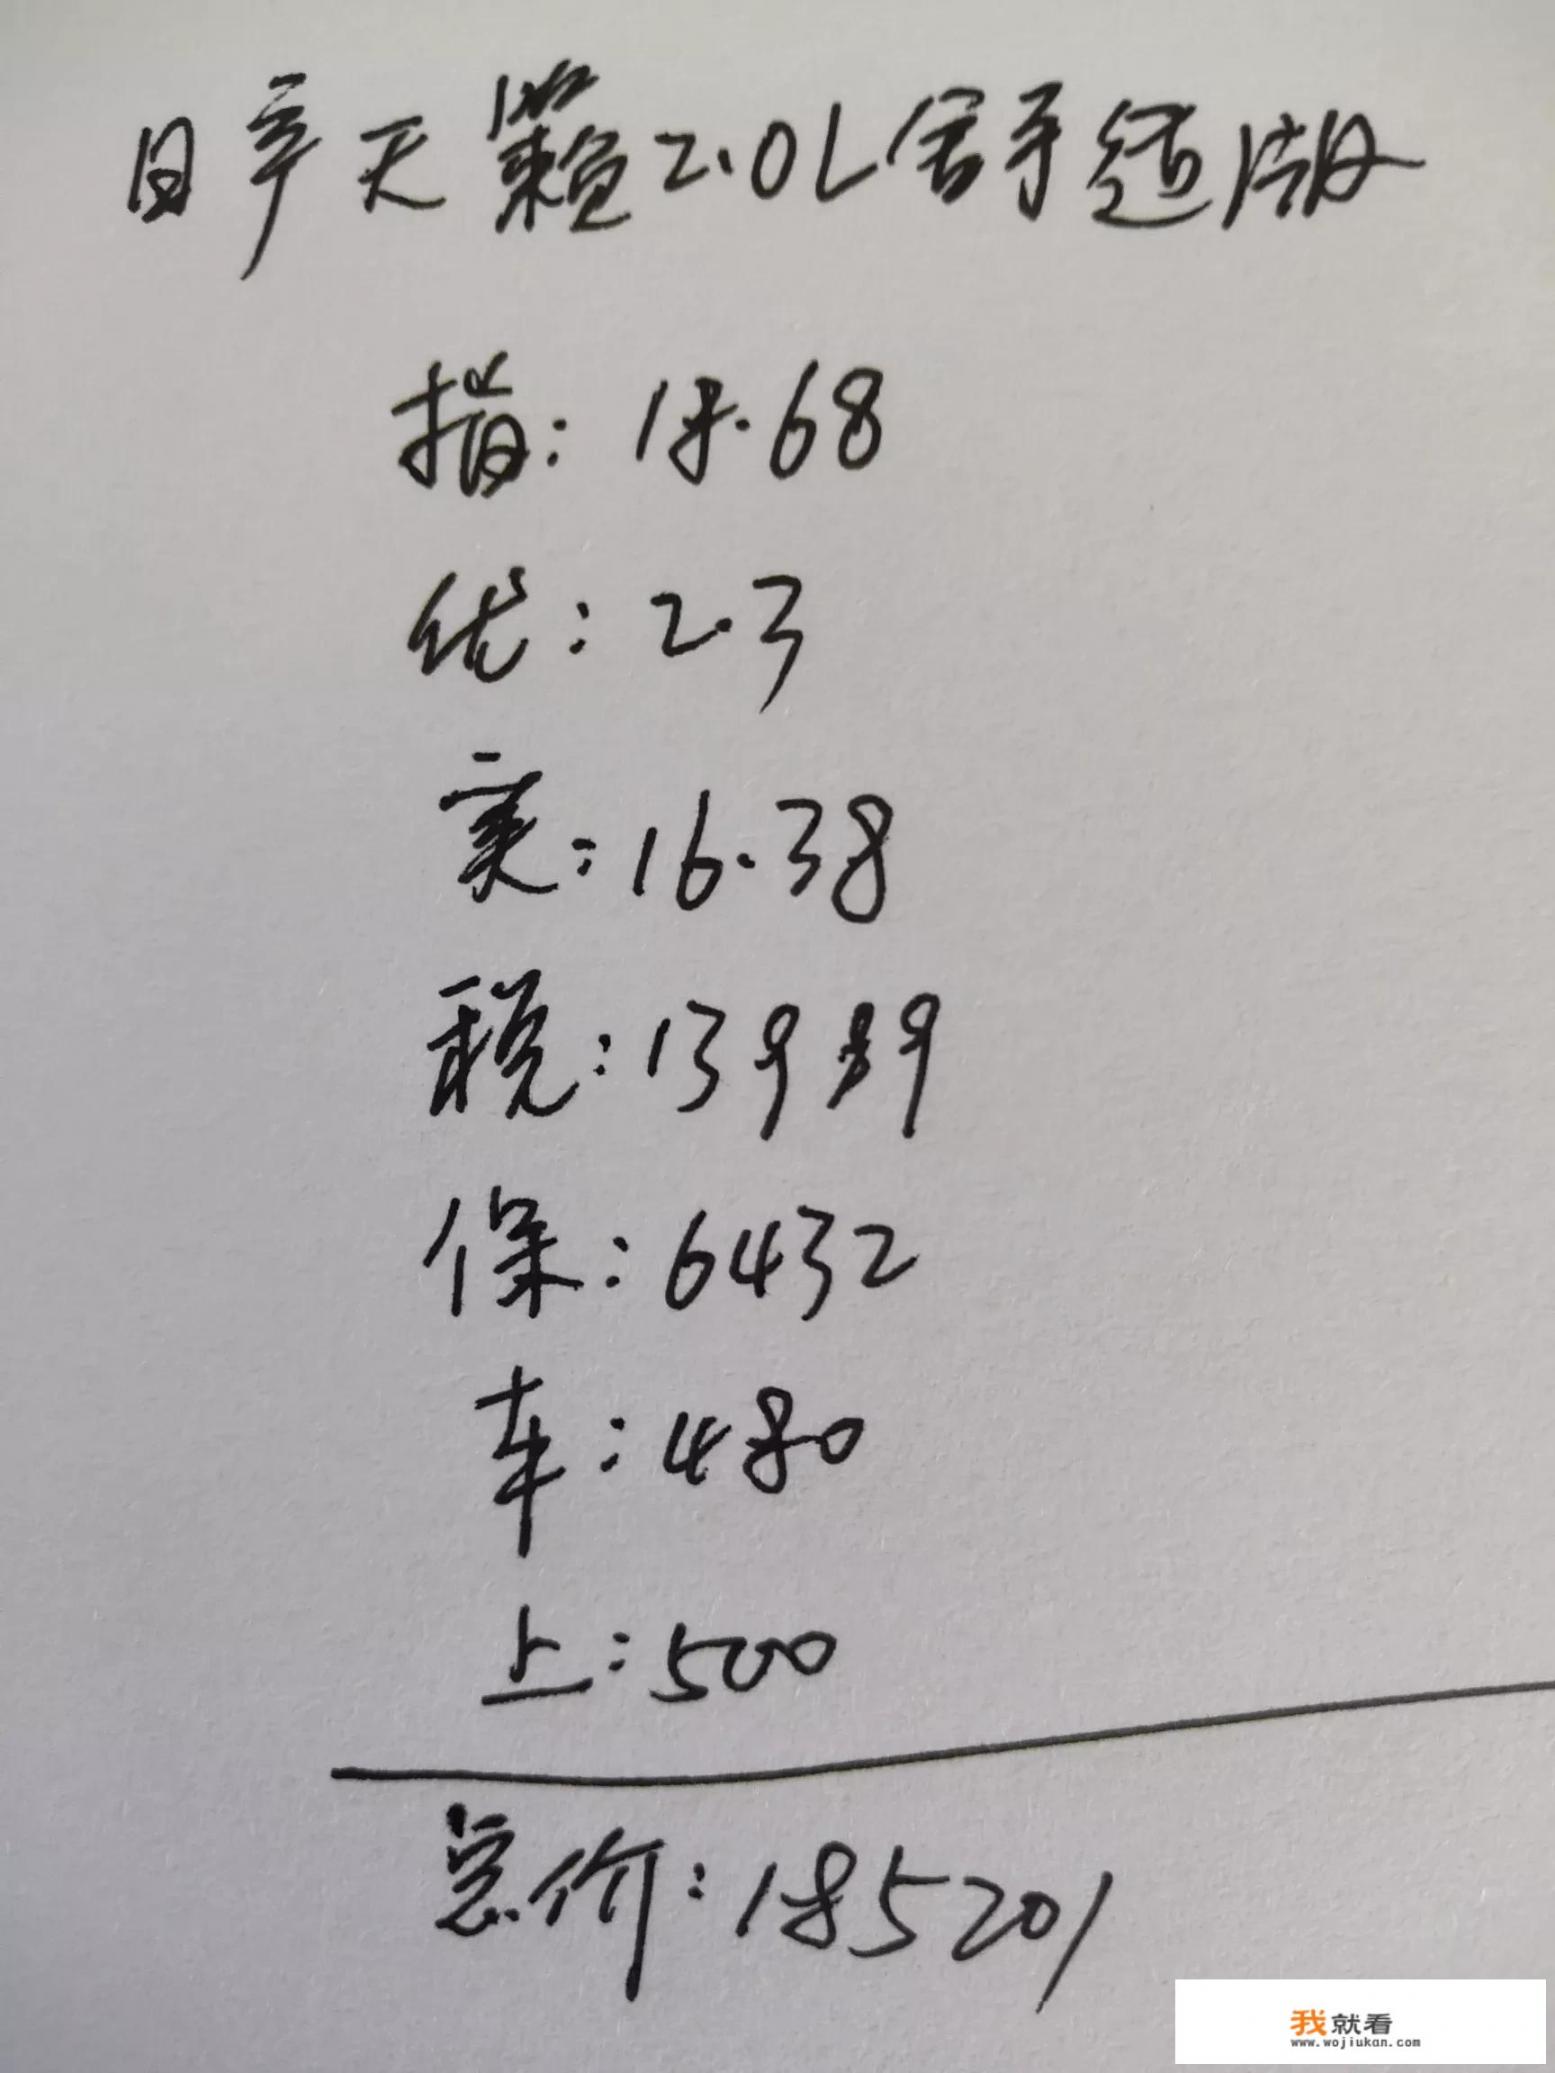 日产天籁2.0L舒适版
指:18.68
优:2.3
实:16.38
税:13989
保:6432
车:480
上:500
总价:185201
我就看
www.wojiukan.com